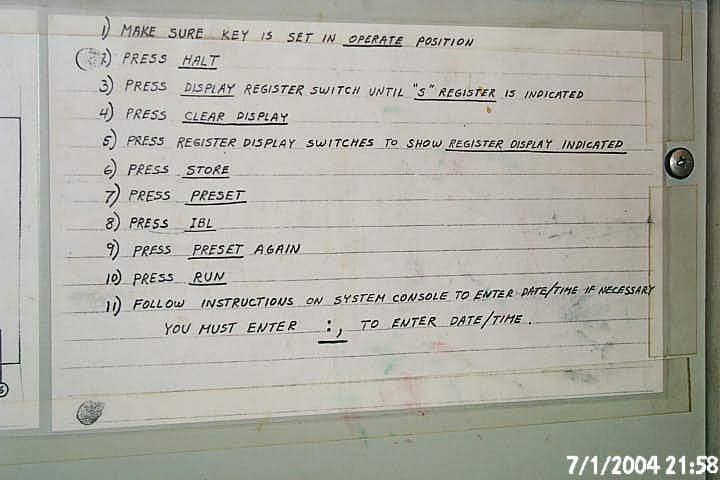 1) MAKE SURE KEY IS SET IN OPERATE POSITION
2) PRESS HALT
3) PRESS DISPLAY REGISTER SWITCH UNTIL "S" REGISTER IS INDICATED
4) PRESS CLEAR DISPLAY
5) PRESS REGISTER DISPLAY SWITCHES TO SHOW REGISTER DISPLAY INDICATED
6) PRESS STORE
7) PRESS PRESET
8) PRESS IBL
9) PRESS PRESET AGAIN
10) PRESS RUN
11) FOLLOW INSTRUCTIONS ON SYSTEM CONSOLE TO ENTER DATE/TIME IF NECESSARY
YOU MUST ENTER :, TO ENTER DATE/TIME.
7/1/2004 21:58